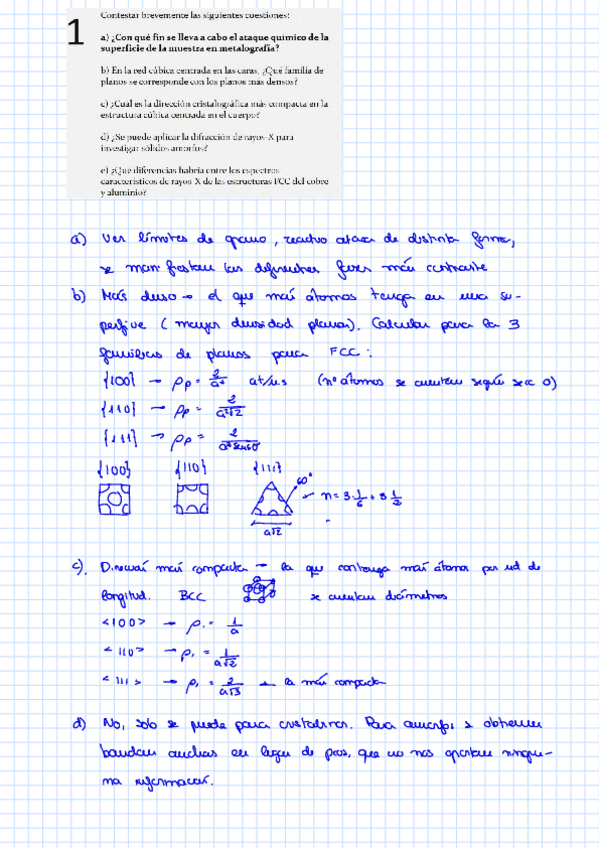 1
Contestar brevemente las siguientes cuestiones:
a) ¿Con qué fin se lleva a cabo el ataque químico de la
superficie de la muestra en metalografía?
b) En la red cúbica centrada en las caras, ¿Qué familia de
planos se corresponde con los planos más densos?
c) ¿Cuál es la dirección cristalográfica más compacta en la
estructura cúbica centrada en el cuerpo?
d) ¿Se puede aplicar la difracción de rayos-X para
investigar sólidos amorfos?
e) ¿Qué diferencias habría entre los espectros
característicos de rayos-X de las estructuras FCC del cobre
y aluminio?
a) Ver límites de grano, reactivo ataca de distinta forma,
se manifiestan las diferentes fases más contraste
b) Más denso → el que más átomos tenga en una su-
perficie (mayor densidad planar). Calcular para las 3
familias de planos para FCC:
{100} → ρp = 2/a² at/u.s (nº átomos se cuentan según secc o)
{110} → ρp = 2/a²√2
{111} → ρp = 2/a² sen60°
{100} {110} {111} 60°
n = 3·1/6 + 3·1/2
a√2
c) Dirección más compacta → la que contenga más átomos por ud de
longitud. BCC se cuentan diámetros
<100> → ρ = 1/a
<110> → ρ = 1/a√2
<111> → ρ = 2/a√3 → la más compacta
d) No, solo se puede para cristalinos. Para amorfos se obtienen
bandas anchas en lugar de picos, que no nos aportan ningu-
na información.